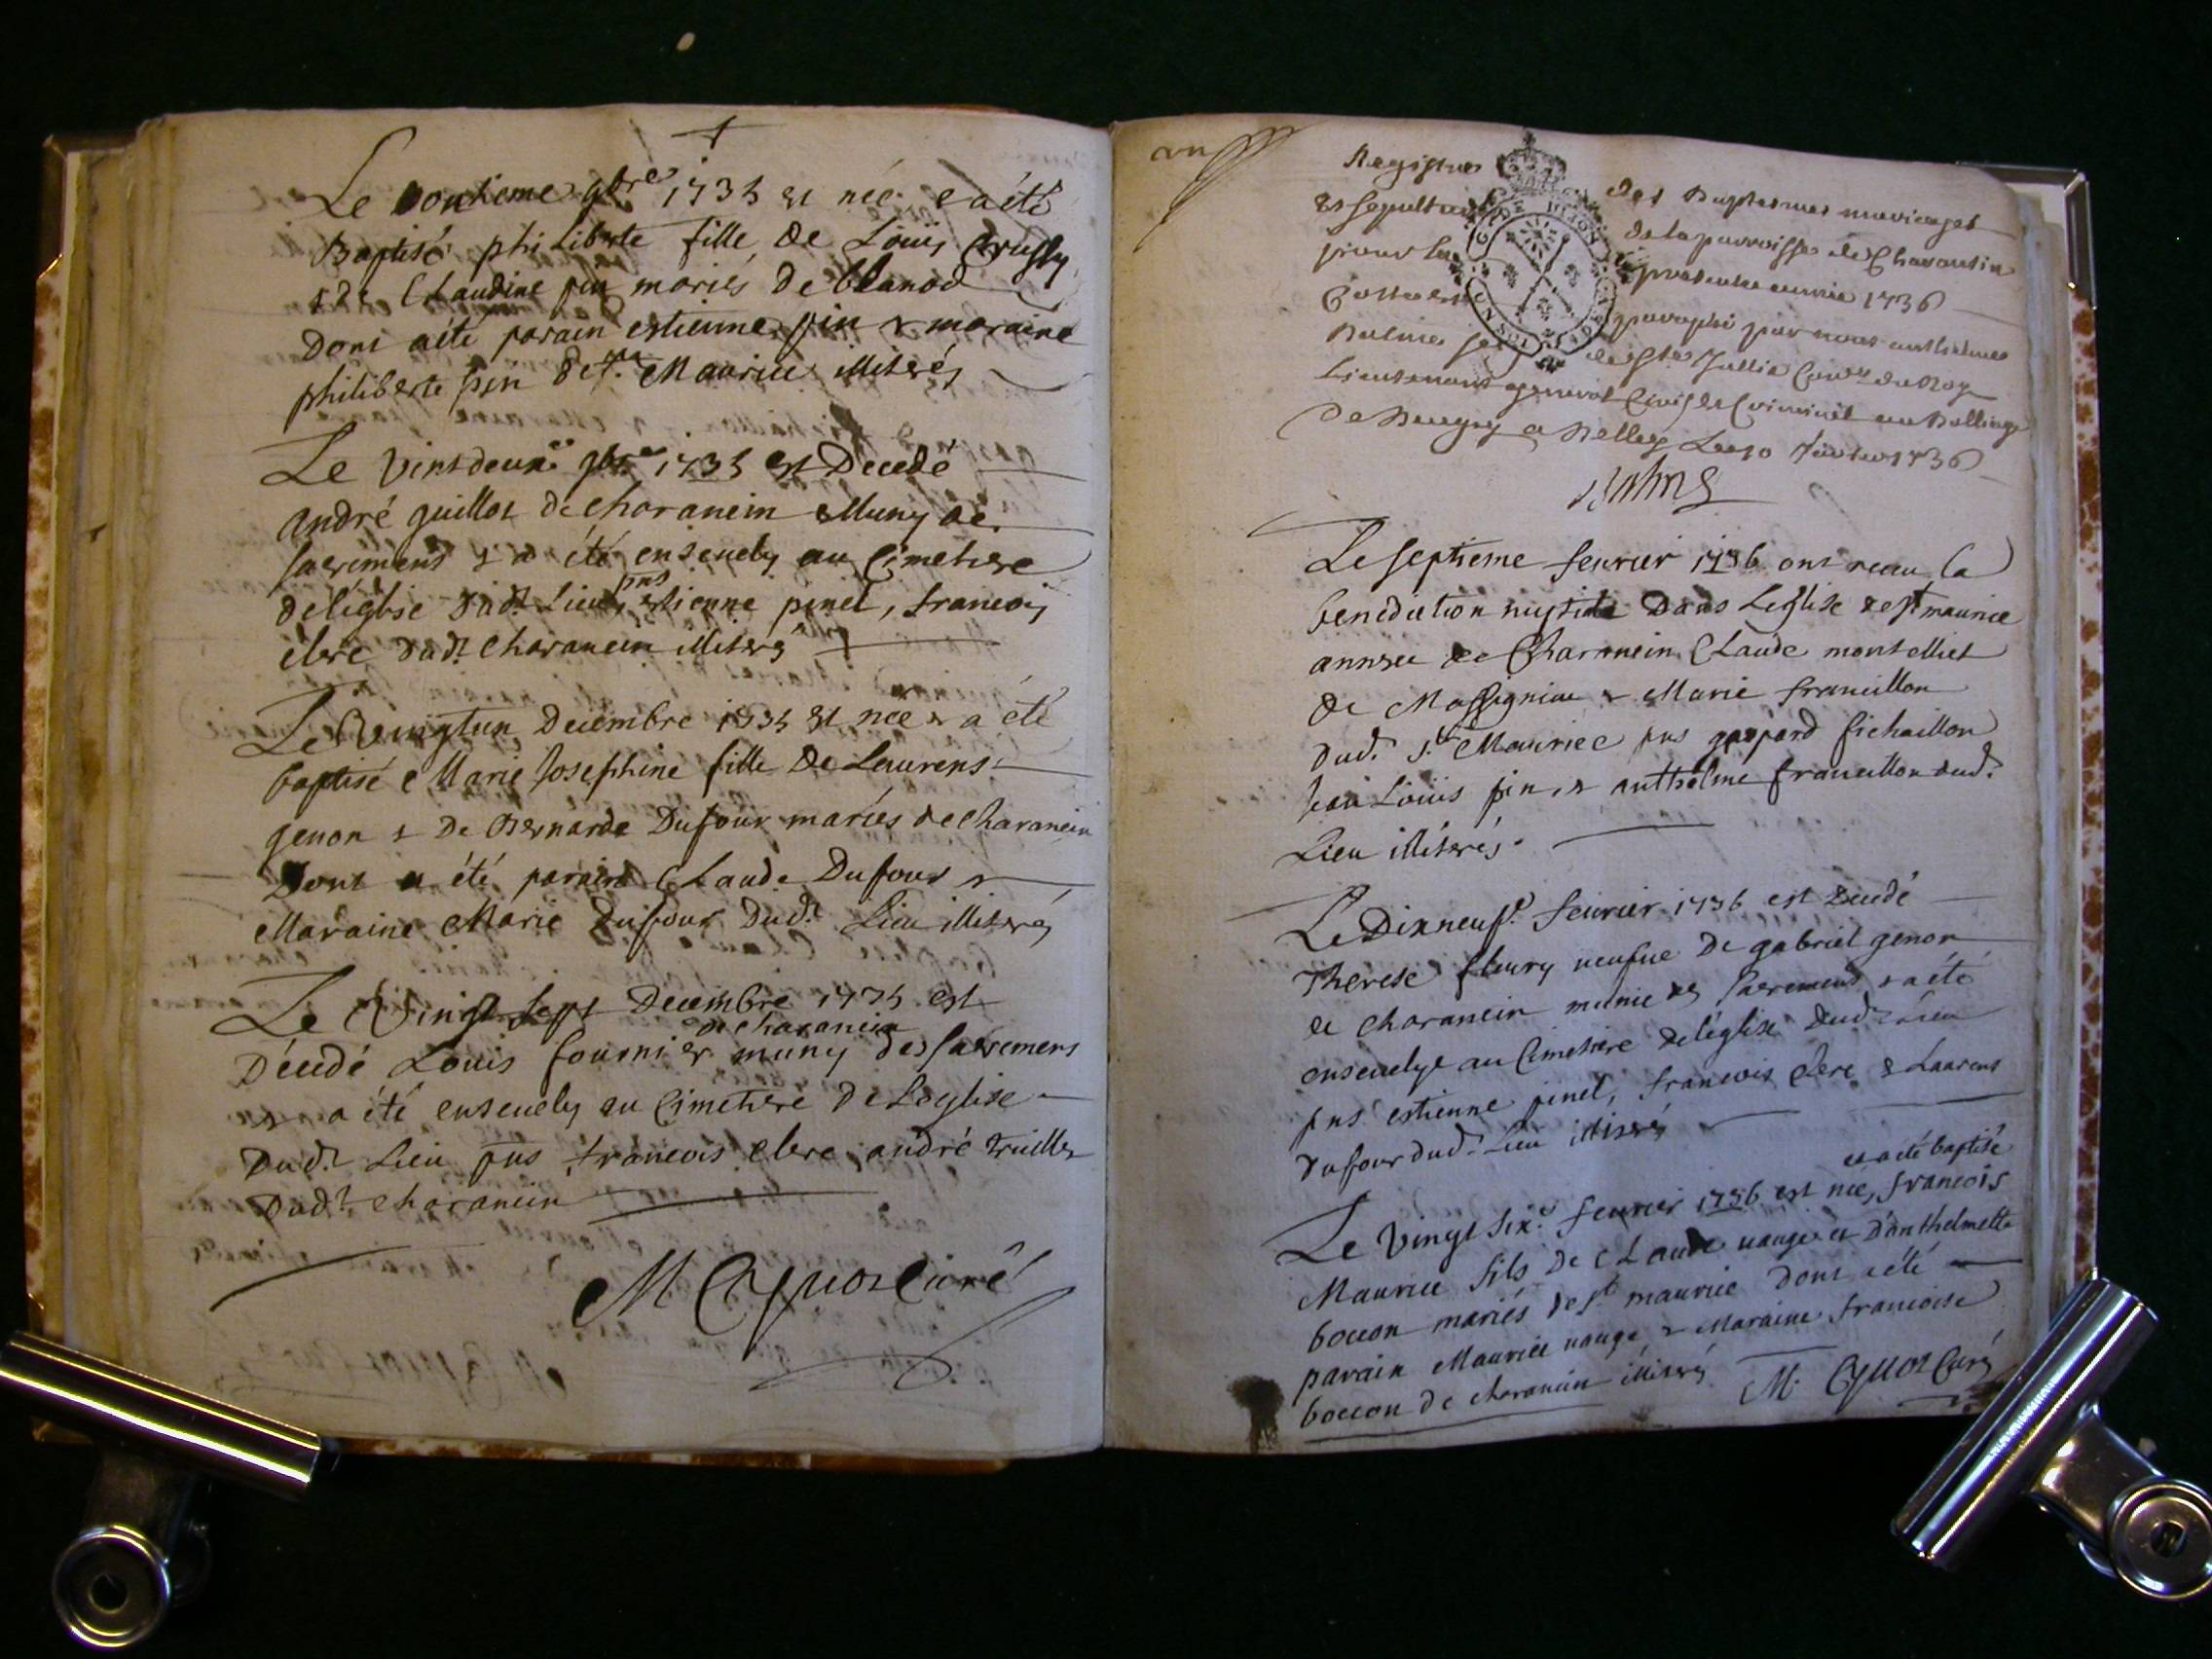 Le onzieme 9bre 1735 est née e a été
Baptisé philiberte fille de Loüis
& de Claudine pin mariés de
Dont a été parain estienne pin & maraine
philiberte pin de st. Maurice illiterés
Le vintdeuxe 9bre 1735 est Decedé
André guillot de charancin Muny de
sacremens & a été enseuely au Cimetiere
deléglise dudt. Lieu pns estienne pinet, francois
clerc dudt. charancin illiterés
Le vingtun Decembre 1735 est née & a été
baptisé Marie Josephine fille de Laurens
genon & De Bernarde Dufour mariés de charancin
Dont a été parain Claude Dufour &
Maraine Marie Dufour Dudt. Lieu illiterés
Le Vingt sept Decembre 1735 est
de charancin
Décédé Louis fournier muny des sacremens
& a été enseuely au Cimetiere de Leglise
Dudt. Lieu pns francois clerc andré
Dudt. charancin
M Cquot Curé
Registre des Baptesmes mariages
et sepultures de la parroisse de Charancin
pour la presente année 1736
paraphé par nous anthelme
Balme
Lieutenant general Civil et Criminel au Balliage
De Beugey a Belley Le 10 1736
Balme
Le septieme feurier 1736 ont receu la
benediction nuptiale Dans Leglise de st. maurice
annexe de Charancin Claude montelliet
de Massignieu & Marie francillon
dudt. st. Maurice pns gaspard fichaillon
Jean Loüis pin, & anthelme francillon dudt.
Lieu illiterés.
Le Dixneufe. feurier 1736 est decedé
Therese fleury ueufue De gabriel genon
de charancin munie des sacremens & a été
enseuelye au Cimetiere deléglise dudt. Lieu
pns estienne pinet, francois clerc & Laurens
dufour dudt. Lieu illiterés
et a été baptisé
Le vingt sixe. feurier 1736 est née, francois
Maurice fils De Claude uauge et D'anthelmette
boccon mariés de st. maurice Dont a été
parain Maurice uauge & Maraine francoise
boccon de charancin illiterés M. Cquot Curé